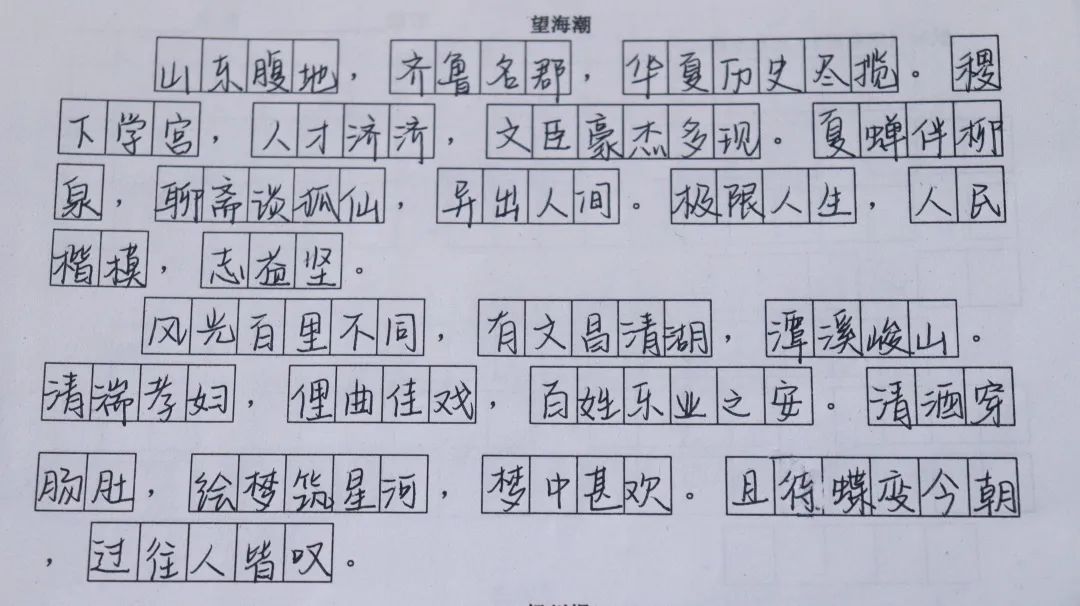 望海潮
山东腹地，齐鲁名郡，华夏历史尽揽。稷
下学宫，人才济济，文臣豪杰多现。夏蝉伴柳
泉，聊斋谈狐仙，异出人间。极限人生，人民
楷模，志益坚。
风光百里不同，有文昌清湖，潭溪峻山。
清湍孝妇，俚曲佳戏，百姓乐业之安。清酒穿
肠肚，绘梦筑星河，梦中甚欢。且待蝶变今朝
，过往人皆叹。